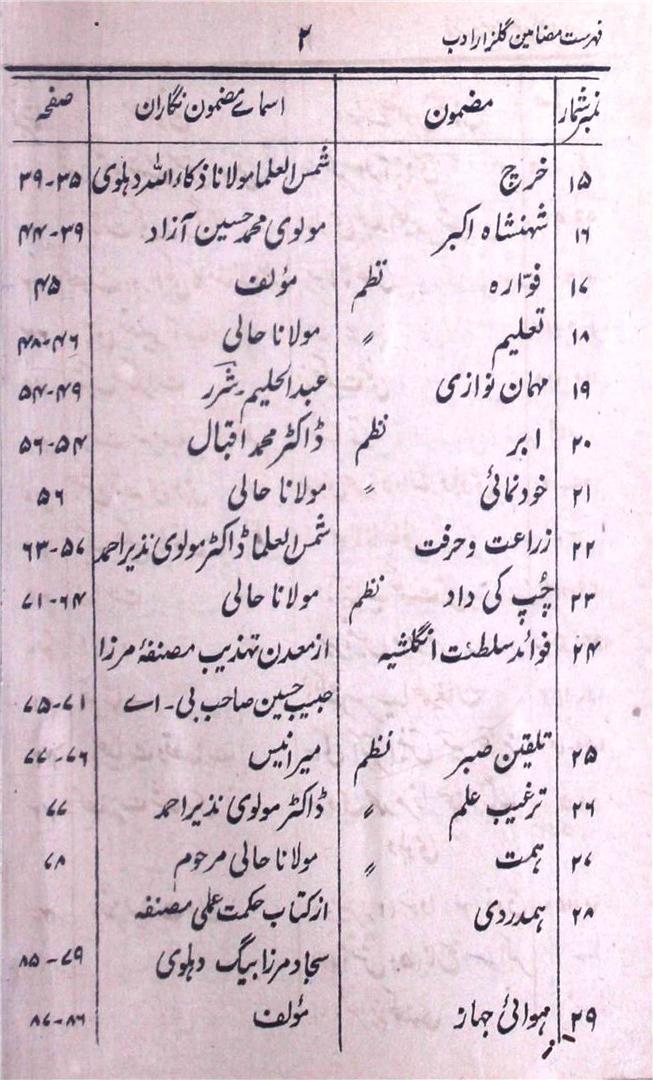 فہرست مضامین گلزار ادب ۲
نمبر شمار مضمون اسمائے مضمون نگاران صفحہ
۱۵ خرچ شمس العلما مولانا ذکاء اللہ دہلوی ۳۵-۳۹
۱۶ شہنشاہ اکبر مولوی محمد حسین آزاد ۳۹-۴۴
۱۷ فوّارہ نظم مؤلف ۴۵
۱۸ تعلیم 〃 مولانا حالی ۴۶-۴۸
۱۹ مہمان نوازی عبدالحلیم شرر ۴۹-۵۴
۲۰ ابر نظم ڈاکٹر محمد اقبال ۵۴-۵۶
۲۱ خودنمائی 〃 مولانا حالی ۵۶
۲۲ زراعت و حرفت شمس العلما ڈاکٹر مولوی نذیر احمد ۵۷-۶۳
۲۳ چُپ کی داد نظم مولانا حالی ۶۴-۷۱
۲۴ فوائد سلطنت انگلشیہ از معدن تہذیب مصنفۂ مرزا
حبیب حسین صاحب بی-اے ۷۱-۷۵
۲۵ تلقین صبر نظم میر انیس ۷۶-۷۷
۲۶ ترغیب علم 〃 ڈاکٹر مولوی نذیر احمد ۷۷
۲۷ ہمت 〃 مولانا حالی مرحوم ۷۸
۲۸ ہمدردی از کتاب حکمت عملی مصنفہ
سجاد مرزا بیگ دہلوی ۷۹-۸۵
۲۹ ہوائی جہاز مؤلف ۸۶-۸۷